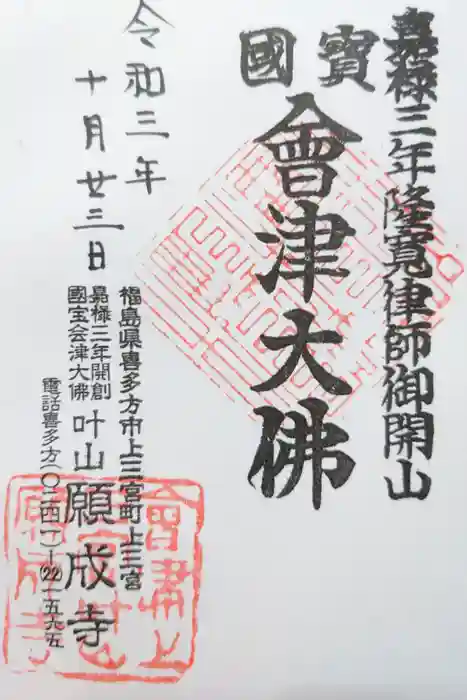 嘉祿三年隆寛律師御開山
國寳
會津大佛
令和三年
十月廿三日
福島県喜多方市上三宮町上三宮
嘉祿三年開創
國宝会津大佛
叶山願成寺
電話喜多方(〇二四一)-(22)-五九五